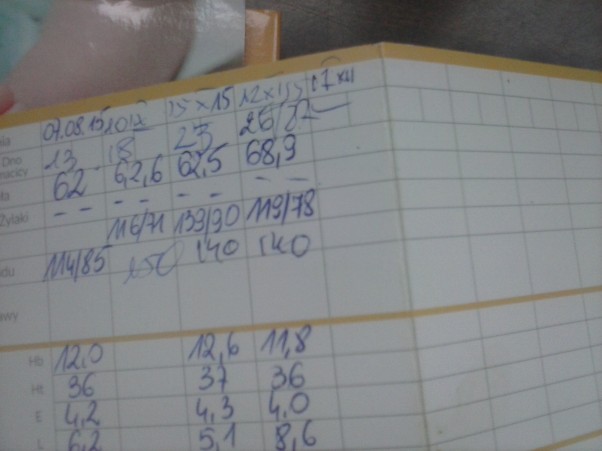 07.08.15 10 IX 15 X 15 12 X 07 XII
Dno 13 18 23 26/27
62 62,6 62,5 68,9
Żylaki - - - - - - - -
116/71 139/90 119/78
114/85 150 140 140
Hb 12,0 12,6 11,8
Ht 36 37 36
E 4,2 4,3 4,0
L 6,2 5,1 8,6